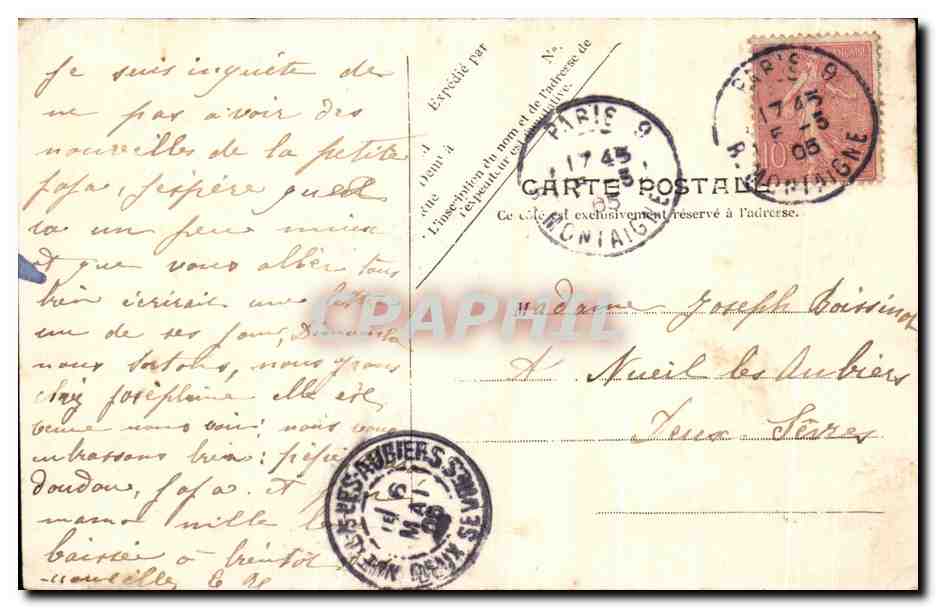 Je suis inquiète de
ne pas avoir des
nouvelles de la petite
fafa, j'espère
va un peu mieux
et que vous allez tous
bien écrirait une
un de ses jours, Dimanche
nous sortons, nous
chez joséphine elle est
venue nous voir: nous vous
embrassons bien:
doudou, fafa. et
mama mille
baisée à bientôt
nouvelles
Expédié par
No.
Demt à
Rue
L'inscription du nom et de l'adresse de
l'expéditeur est facultative.
CARTE POSTALE
Ce côté est exclusivement réservé à l'adresse.
PARIS 9
17 45
5 -5
05
R. MONTAIGNE
PARIS 9
17 45
5 -5
05
R. MONTAIGNE
10
Madame Joseph Boissinot
A Nueil les Aubiers
Deux Sèvres
NUEIL-S-LES-AUBIERS
6
MAI
05
DEUX SEVRES
CPAPHIL